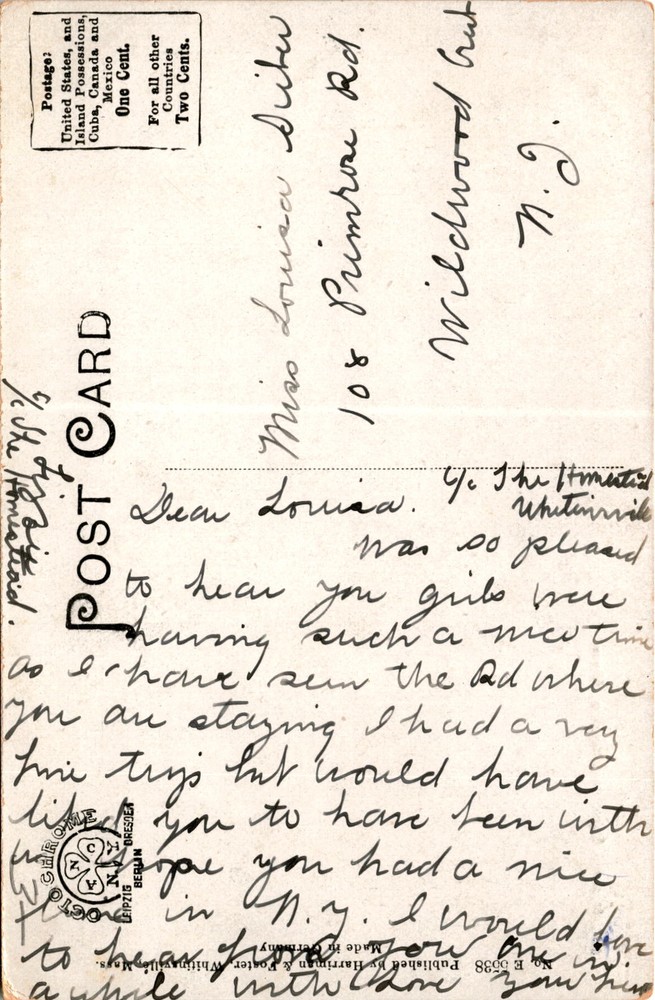 Postage:
United States, and
Island Possessions,
Cuba, Canada and
Mexico
One Cent.
For all other
Countries
Two Cents.
POST CARD
Miss Louisa
108 Primrose Rd.
Wildwood Crest
N. J.
c/o The Homestead
Whitinsville
Dear Louisa.
was so pleased
to hear you girls were
having such a nice time
as I have seen the Rd where
you are staying I had a very
fine trip but would have
liked you to have been with
hope you had a nice
time in N.Y. I would love
to hear from you once in
awhile with Love your
c/o The Homestead.
OCTOCHROME
A N C
N. Y.
LEIPZIG
BERLIN
DRESDEN
No. E 5538 Published by Harriman & Foster, Whitinsville, Mass.
Made in Germany